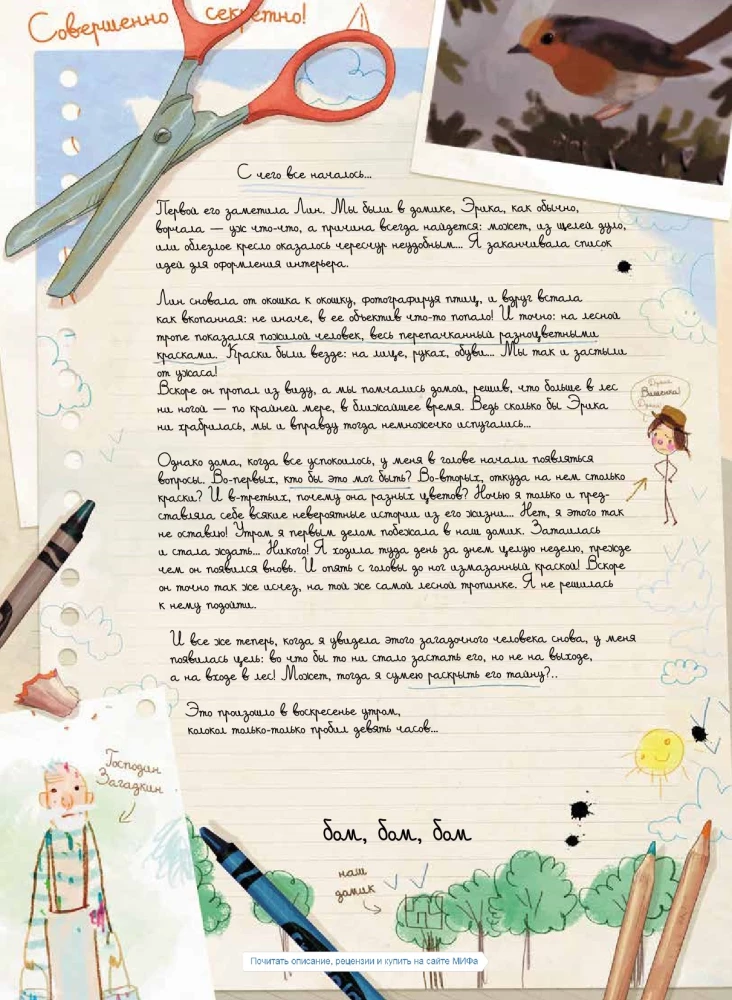 Совершенно секретно!
С чего все началось...
Первой его заметила Лин. Мы были в домике, Эрика, как обычно,
ворчала — уж что-что, а причина всегда найдется: может, из щелей дуло,
или облезлое кресло оказалось чересчур неудобным... Я заканчивала список
идей для оформления интерьера.
Лин сновала от окошка к окошку, фотографируя птиц, и вдруг встала
как вкопанная: не иначе, в ее объектив что-то попало! И точно: на лесной
тропе показался пожилой человек, весь перепачканный разноцветными
красками. Краски были везде: на лице, руках, обуви... Мы так и застыли
от ужаса!
Вскоре он пропал из виду, а мы помчались домой, решив, что больше в лес
ни ногой — по крайней мере, в ближайшее время. Ведь сколько бы Эрика
ни храбрилась, мы и вправду тогда немножечко испугались...
Однако дома, когда все успокоилось, у меня в голове начали появляться
вопросы. Во-первых, кто бы это мог быть? Во-вторых, откуда на нем столько
краски? И в-третьих, почему она разных цветов? Ночью я только и пред-
ставляла себе всякие невероятные истории из его жизни... Нет, я этого так
не оставлю! Утром я первым делом побежала в наш домик. Затаилась
и стала ждать... Никого! Я ходила туда день за днем целую неделю, прежде
чем он появился вновь. И опять с головы до ног измазанный краской! Вскоре
он точно так же исчез, на той же самой лесной тропинке. Я не решилась
к нему подойти.
И все же теперь, когда я увидела этого загадочного человека снова, у меня
появилась цель: во что бы то ни стало застать его, но не на выходе,
а на входе в лес! Может, тогда я сумею раскрыть его тайну?..
Это произошло в воскресенье утром,
колокол только-только пробил девять часов...
бом, бом, бом
Господин
Загадкин
наш
домик
Почитать описание, рецензии и купить на сайте МИФа